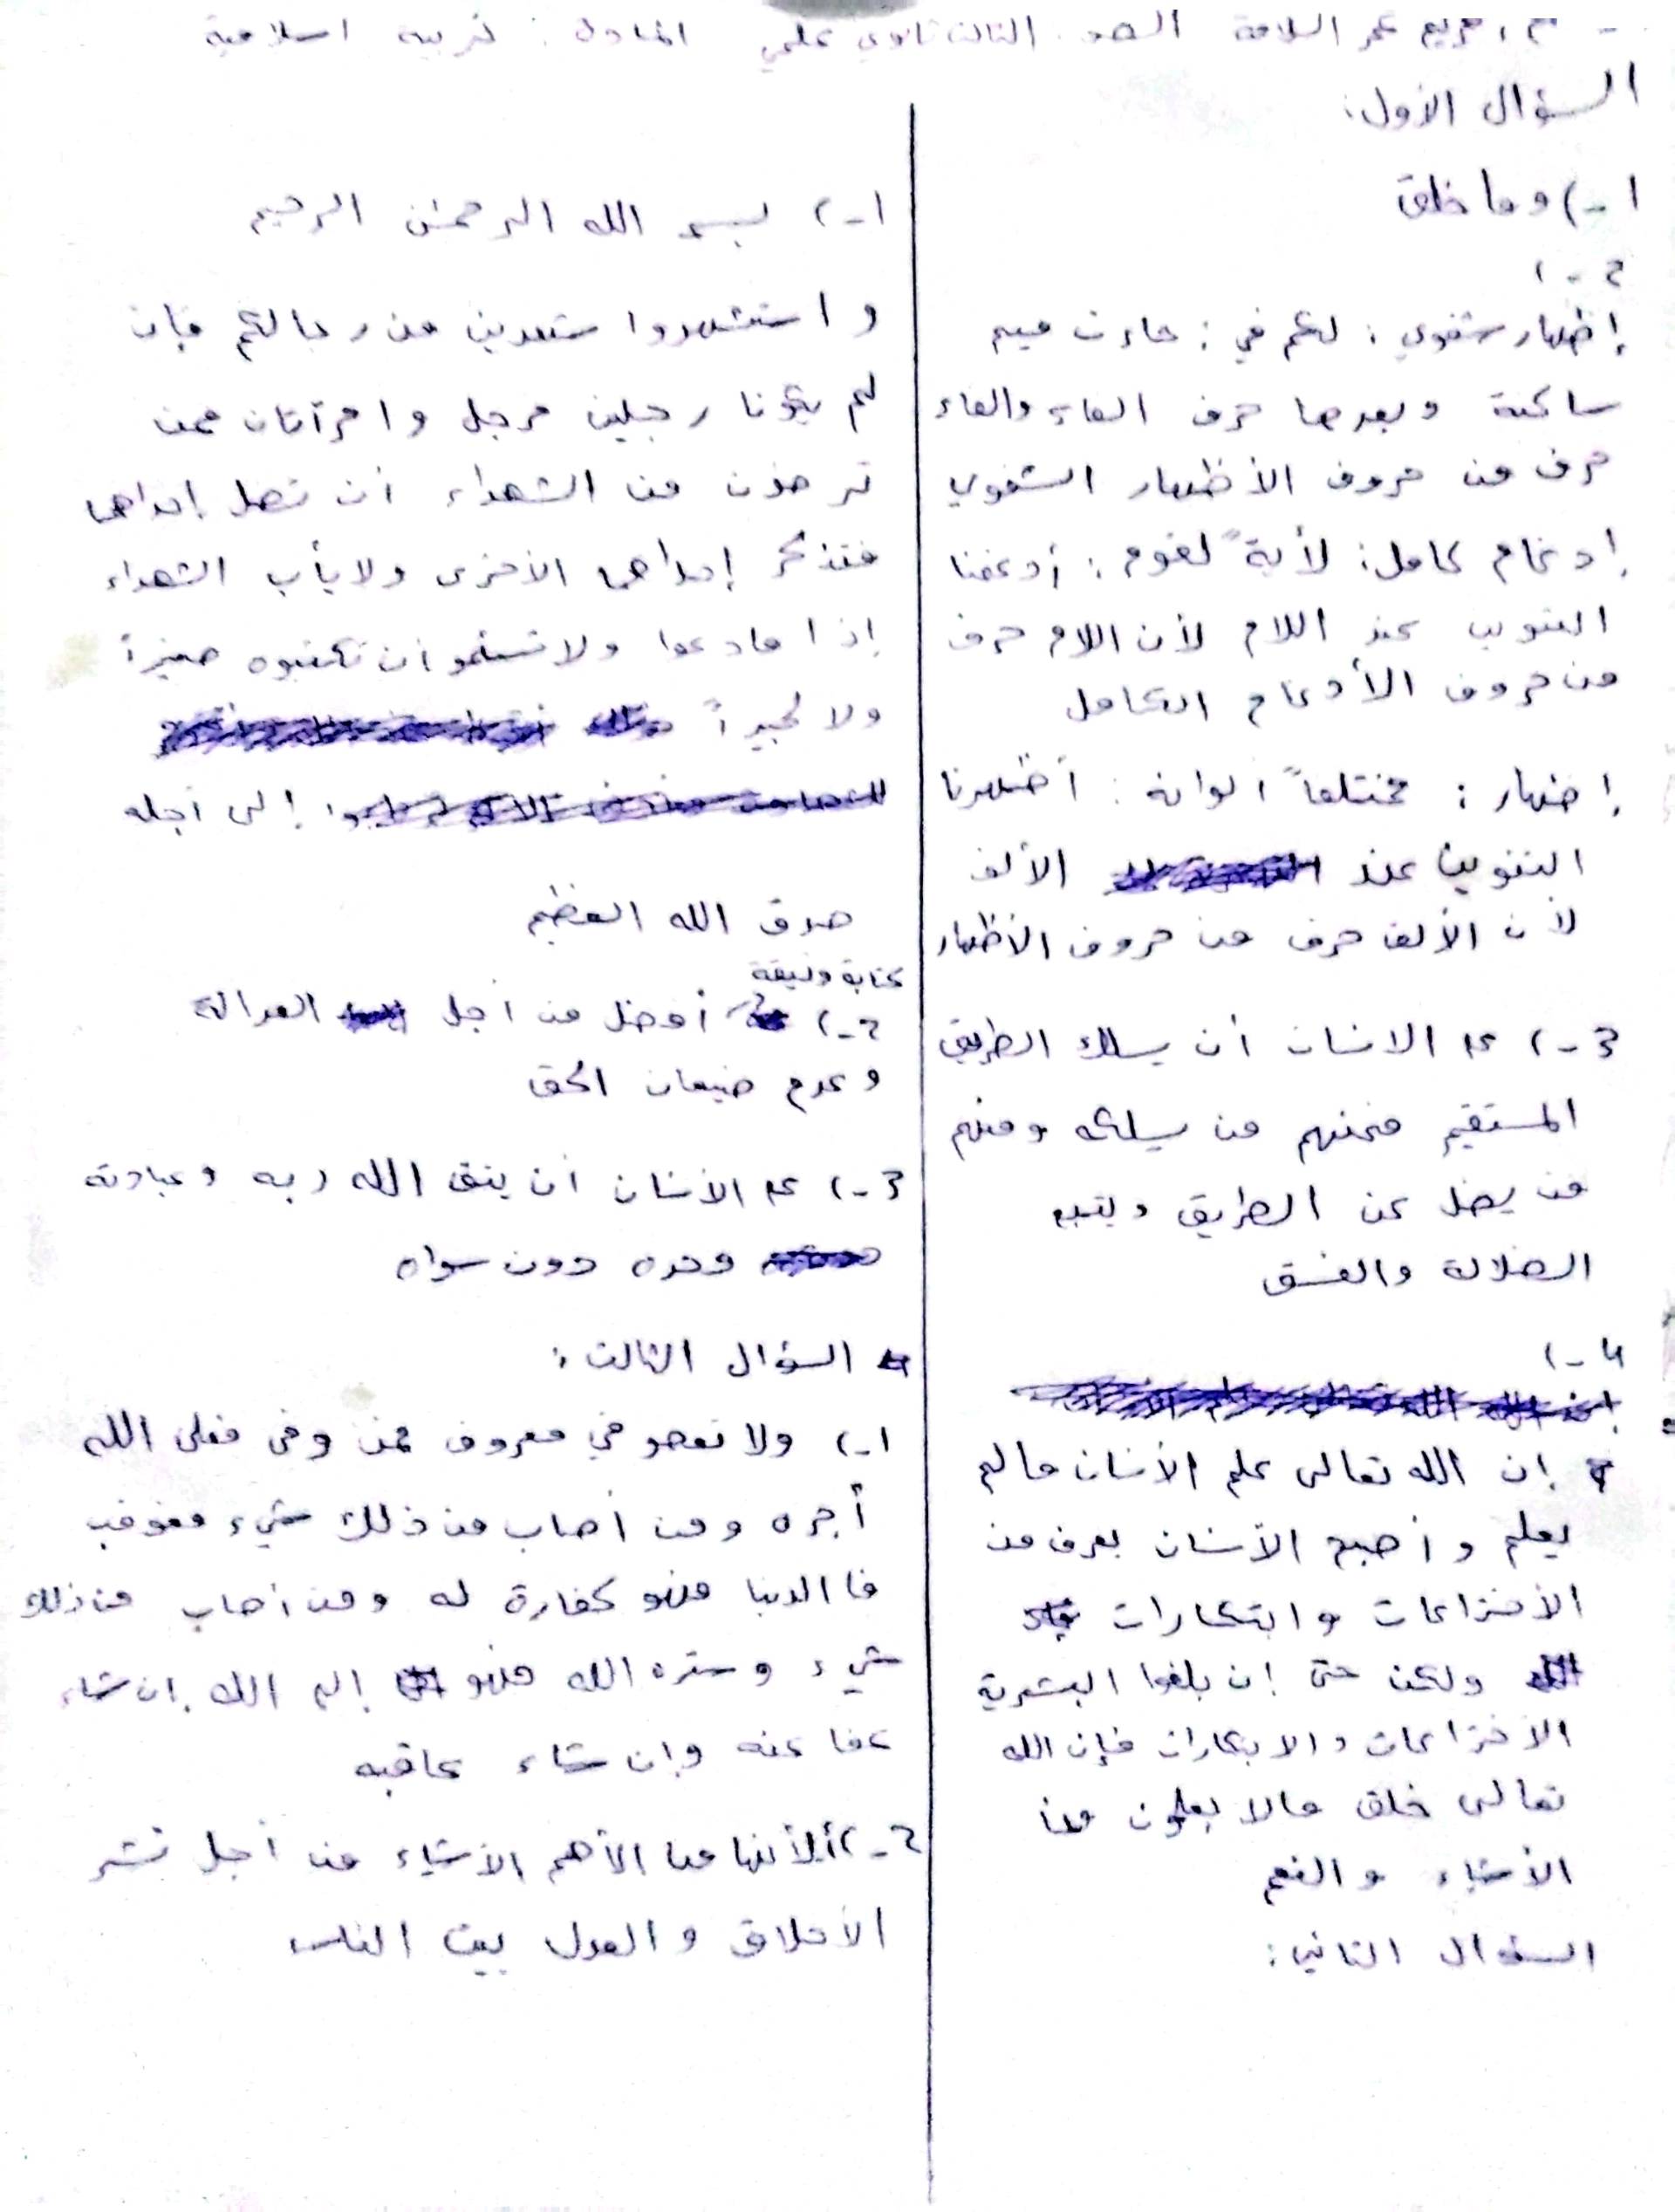 السلامة الصف الثالث ثانوي علمي المادة : تربية اسلامية
السؤال الأول:
1-) وما خلق
2-)
إظهار شفوي : لكم في : جاءت ميم
ساكنة وبعدها حرف الفاء والفاء
حرف من حروف الأظهار الشفوي
إدغام كامل: لأية ً لقوم : أدغمنا
التنوين عند اللام لأن اللام حرف
من حروف الأدغام الكامل
إضهار : مختلفاً ألوانه : أظهرنا
التنوين عند الألف
لأن الألف حرف من حروف الأظهار
3-) على الانسان أن يسلك الطريق
المستقيم فمنهم من يسلكه ومنهم
من يضل عن الطريق ويتبع
الضلالة والفسق
4-)
إن الله تعالى علم الأنسان مالم
يعلم وأصبح الأنسان يعرف من
الأختراعات و ابتكارات
ولكن حتى إن بلغوا البشرية
الأختراعات والابتكارات فإن الله
تعالى خلق مالا يعلمون من
الأشياء والنعم
السؤال الثاني:
1-) بسم الله الرحمن الرحيم
واستشهدوا شهدين من رجالكم فإن
لم يكونا رجلين فرجل وامرأتان ممن
ترضون من الشهداء أن تضل إحداهما
فتذكر إحداهما الأخرى ولا يأب الشهداء
إذا مادعوا ولا تسئمو أن تكتبوه صغيراً
ولا كبيراً
إلى أجله
صدق الله العظيم
كتابة وثيقة
2-) أفضل من أجل العدالة
وعدم ضيعان الحق
3-) على الأنسان أن يتق الله ربه وعبادته
وحده دون سواه
السؤال الثالث :
1-) ولا تعصو في معروف فمن وفى فعلى الله
أجره ومن أصاب من ذلك شيء فعوقب
فا الدنيا فهو كفارة له ومن أصاب من ذلك
شيء وستره الله فهو إلى الله إن شاء
عفا عنه وإن شاء عاقبه
2-) لأنها من الأهم الأشياء من أجل نشر
الأخلاق والعدل بين الناس